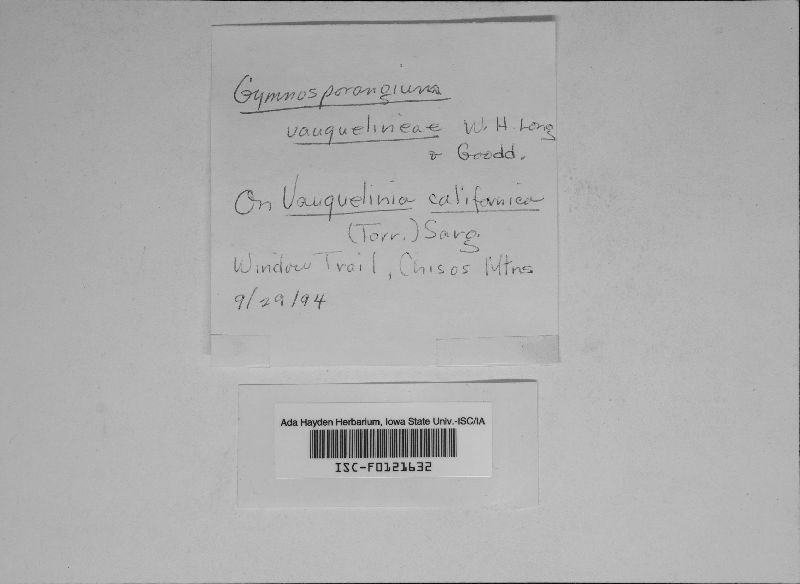 Gymnosporangium
vauquelineae W. H. Long
& Goodd.
On Vauquelinia californica
(Torr.) Sarg.
Window Trail, Chisos Mtns
9/29/94
Ada Hayden Herbarium, Iowa State Univ.-ISC/IA
ISC-F0121632